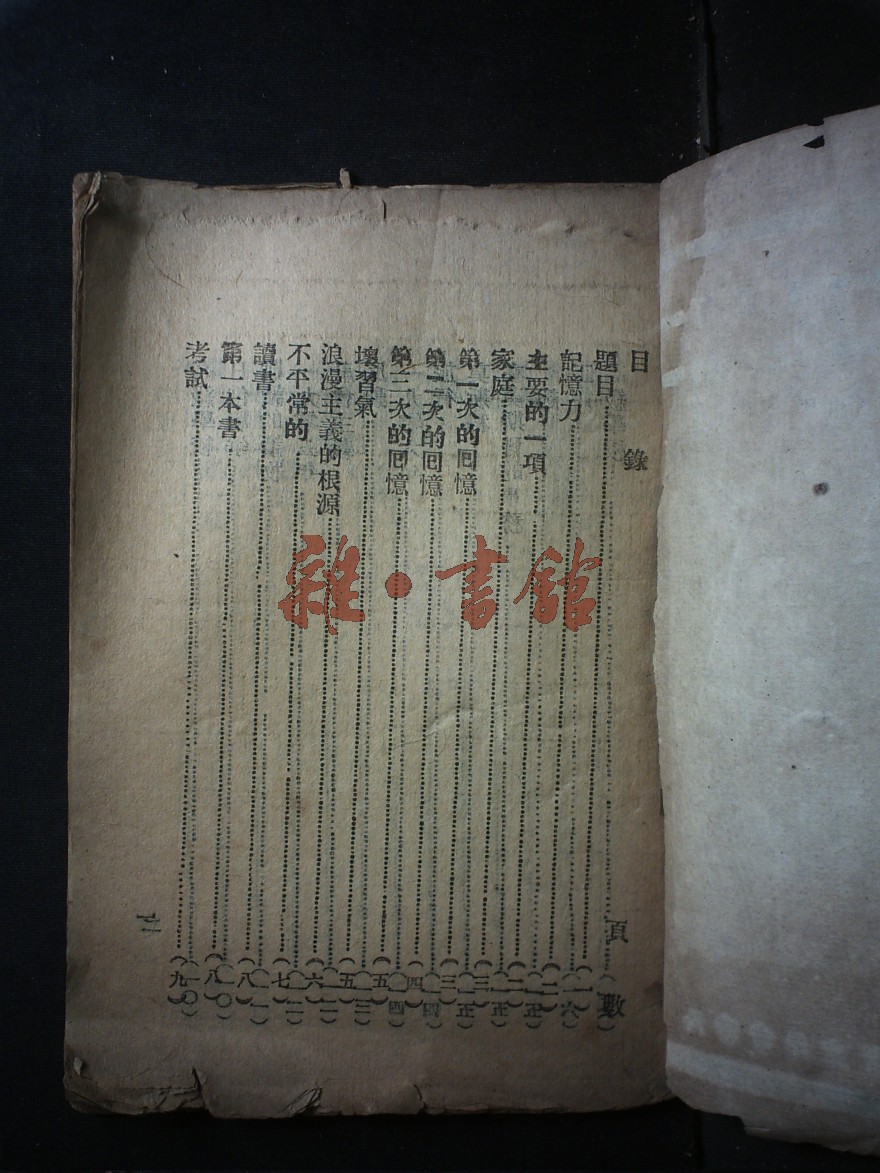 目錄 頁數
題目（一）
記憶力（二）
主要的一項（二）
家庭（三）
第一次的回憶（三）
第二次的回憶（四）
第三次的回憶（五）
壞習氣（五）
浪漫主義的根源（六）
不平常的（七）
讀書（八）
第一本書（八）
考試（九）
雜·書館